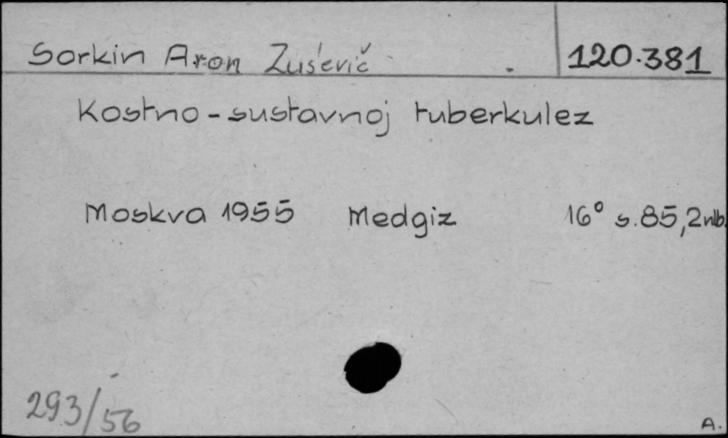 Sorkin Aron Zuśevič 120.381
Kostno-sustavnoj tuberkulez
Moskva 1955 Medgiz 16° s.85,2nlb.
293/56
A.